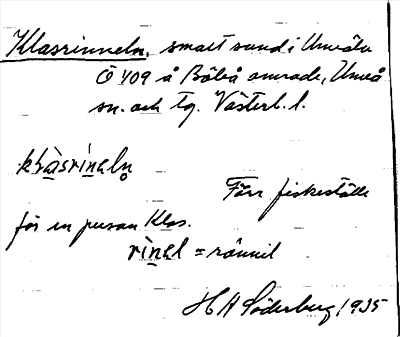 Klasrinneln, smalt sund i Umeälv
Ö 409 å Böleå område, Umeå
sn. och tg. Västerb. l.
klàsrìneln
Förr fiskeställe
för en person Klas.
rìnel = rännil
H A Söderberg 1935